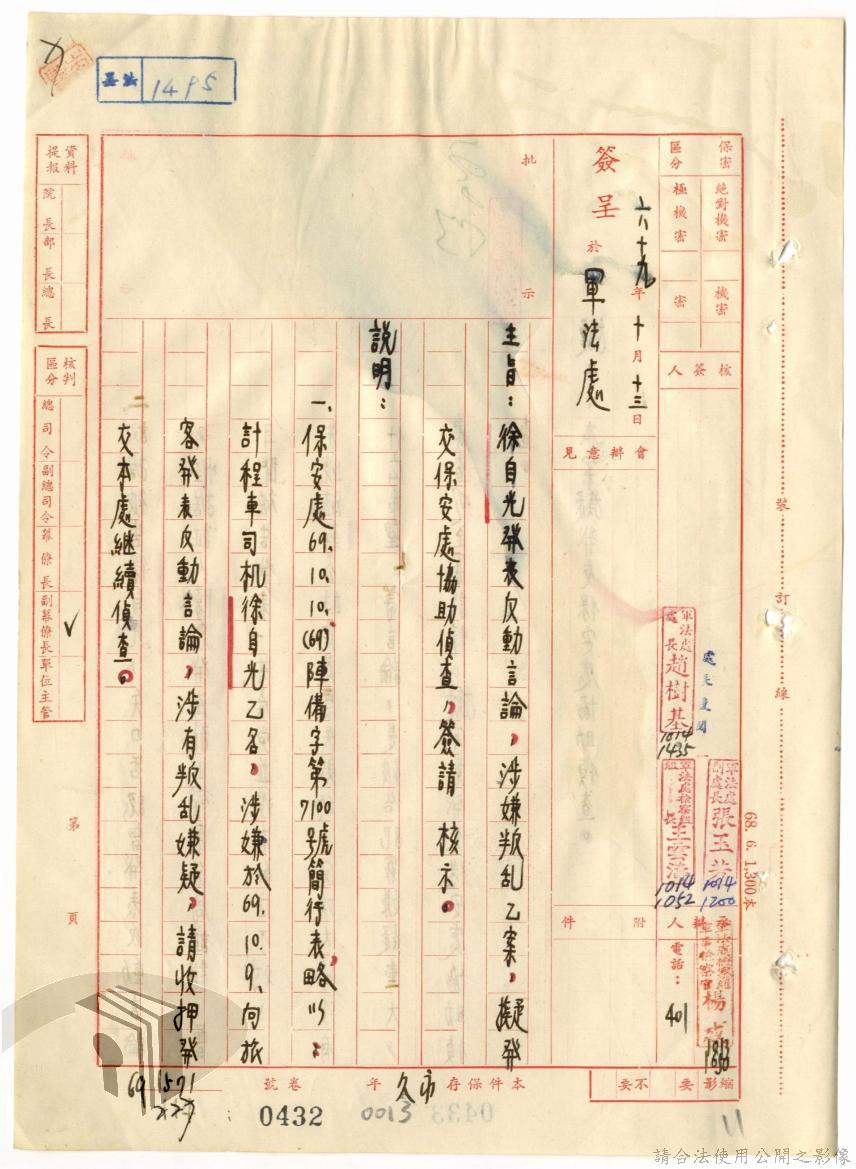 軍法 1495
保密區分
絕對機密
極機密
機密
密
核簽人
軍法處處長趙樹基
1014
1435
軍法處副處長張玉
1014
1200
軍法處檢察組組長王雲濤
1014
1052
承辦人
軍事檢察官楊
電話：401
縮影 要 不要
簽呈 於 軍法處
六十九年十月十三日
會辦意見
附件
批示
主旨：徐自光發表反動言論，涉嫌叛乱乙案，擬發
交保安處協助偵查，簽請 核示。
說明：
一、保安處69.10.10.(69)陣備字第7100號簡行表略以：
計程車司机徐自光乙名，涉嫌於69.10.9.向旅
客發表反動言論，涉有叛乱嫌疑，請收押發
交本處継續偵查。
二
資料提報
院長
部長
總長
核判區分
總司令
副總司令
幕僚長
副幕僚長
單位主管
✓
第 頁
裝訂線
68.6.1,300本
本件保存 永 年
卷號：
0432
0013
69 1571
11
請合法使用公開之影像